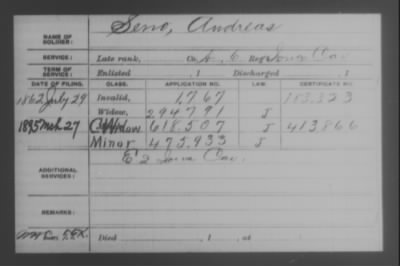 NAME OF SOLDIER: Seno, Andreas
SERVICE: Late rank, Co. A, C, Reg't Iowa Cav
TERM OF SERVICE: Enlisted , 1 Discharged , 1
DATE OF FILING. CLASS. APPLICATION NO. LAW. CERTIFICATE NO.
1862 July 29 Invalid, 1,767
Widow, 294791 J
1895 Mch 27 C Widow 618,507 J 413866
Minor 475,933 J
ADDITIONAL SERVICES: E 2 Iowa Cav.
REMARKS:
Died , 1 , at